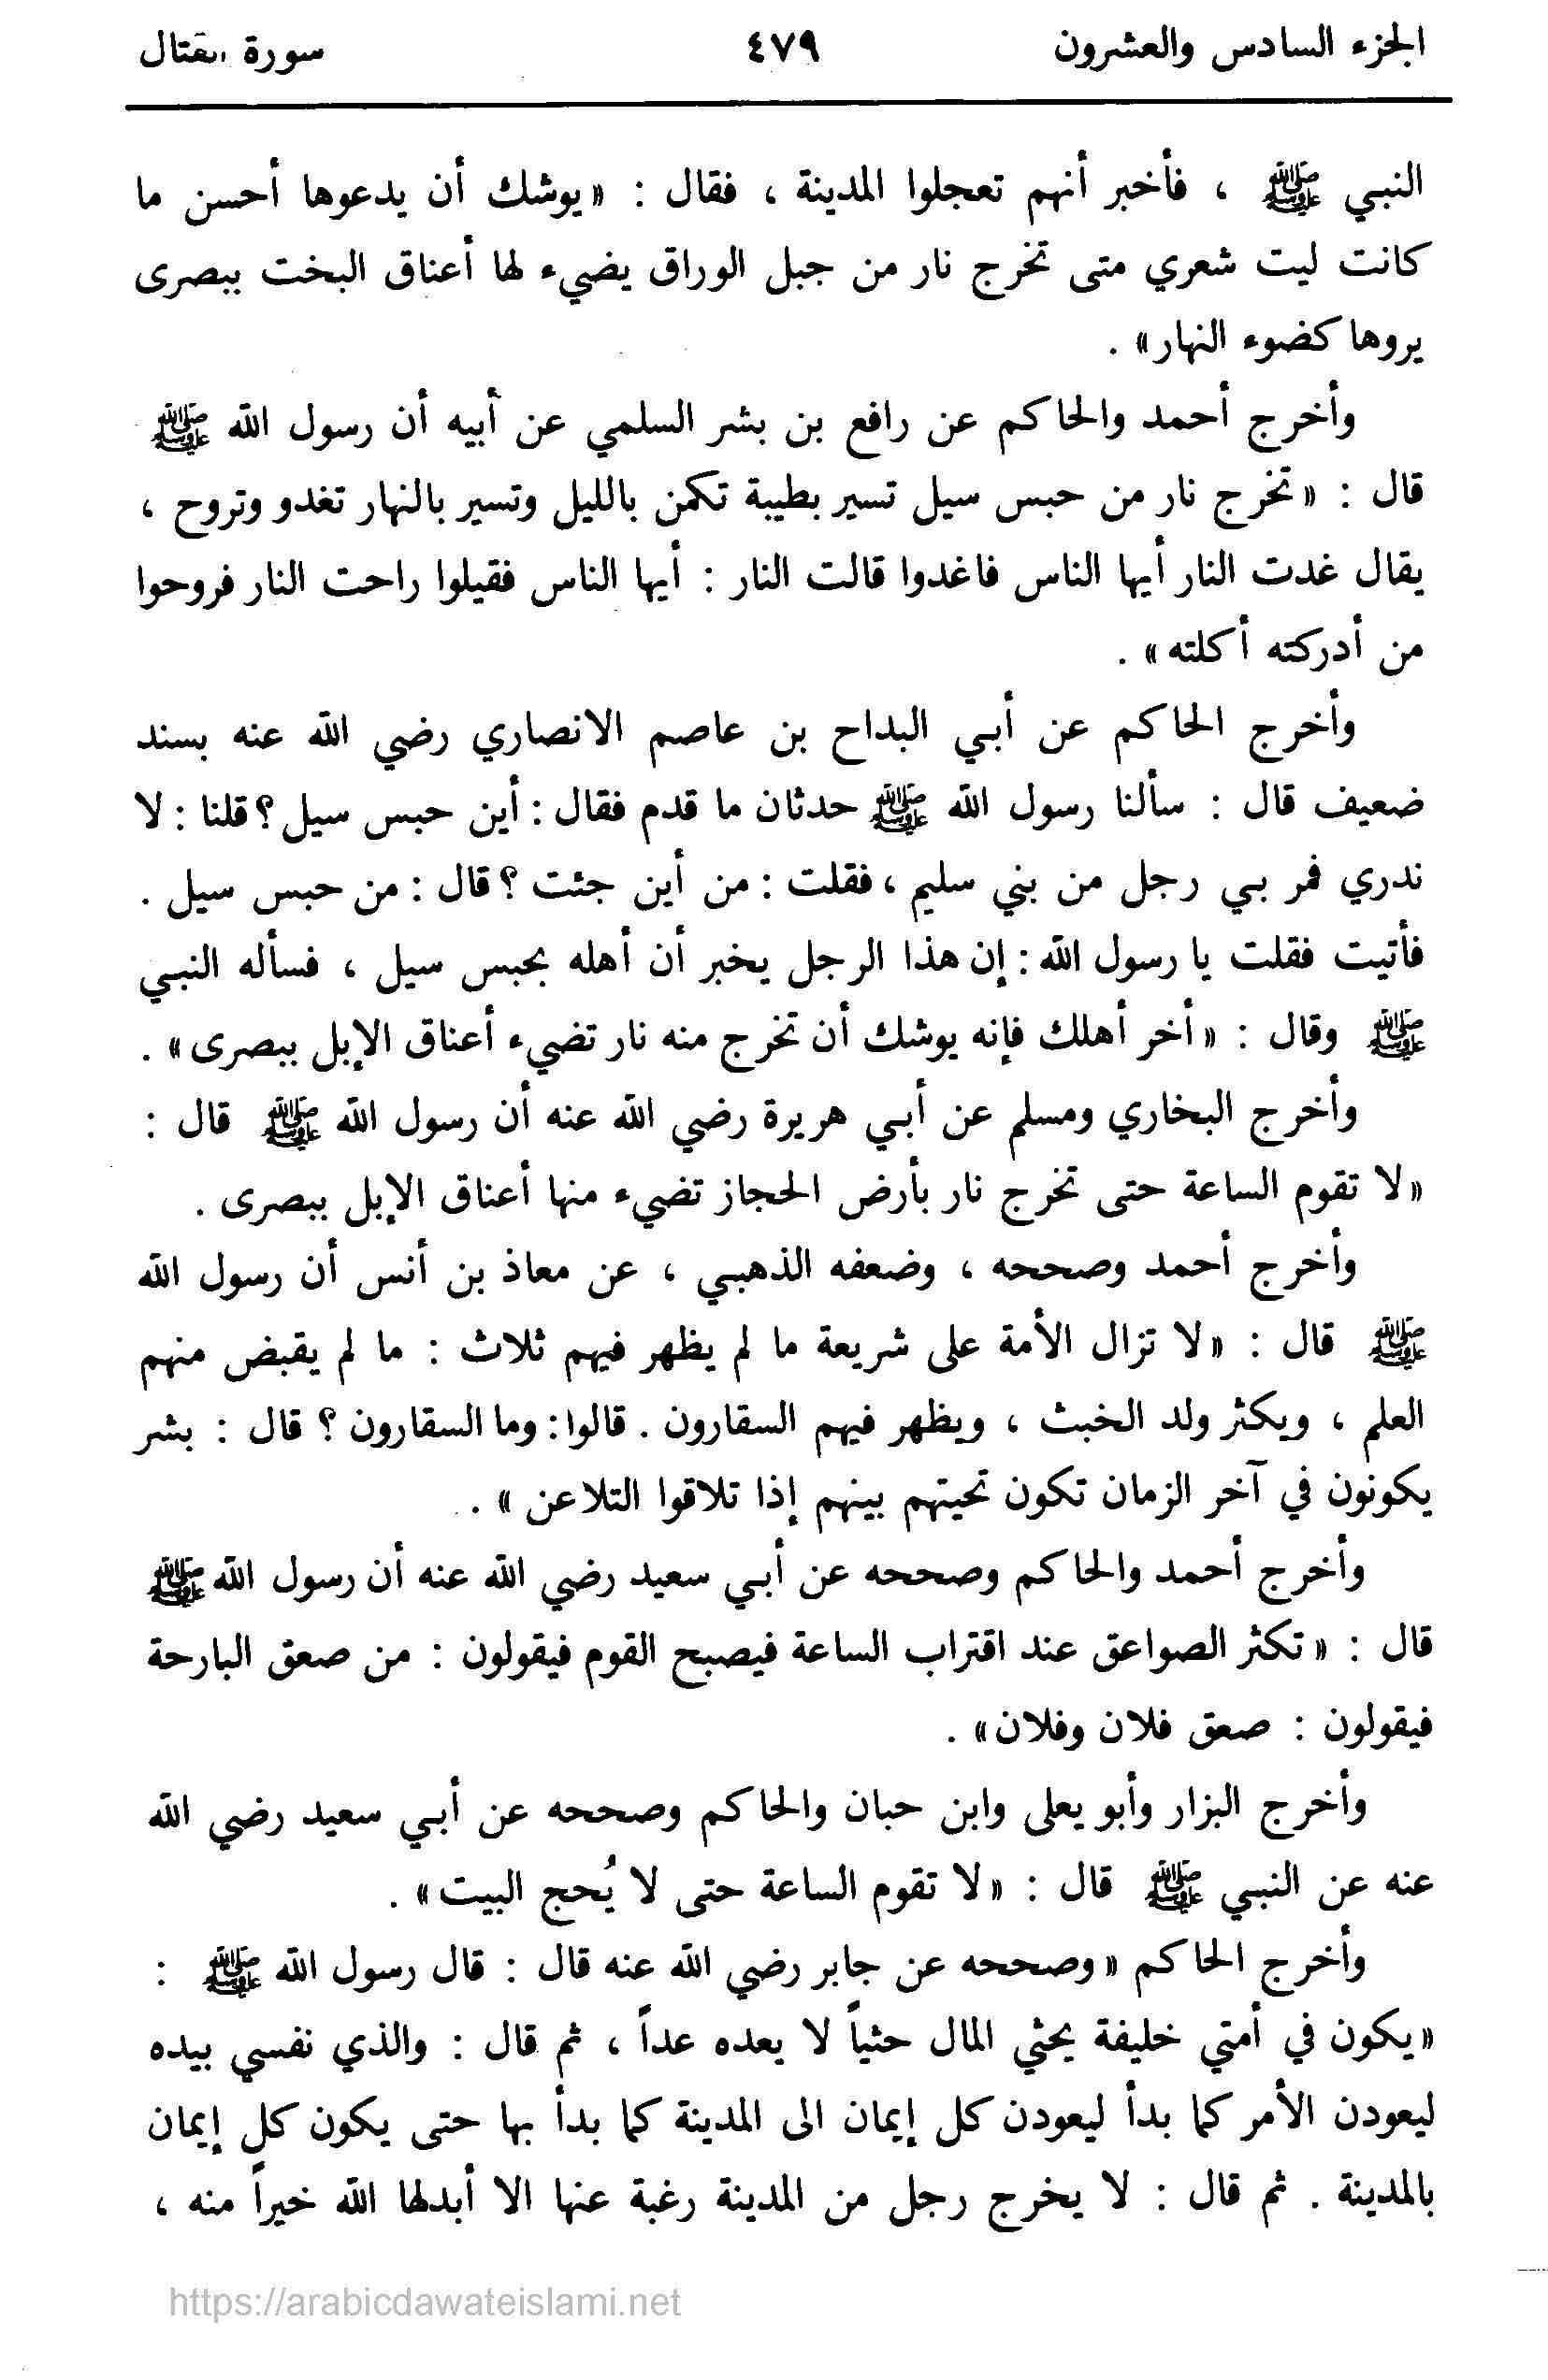 الجزء السادس والعشرون ٤٧٩ سورة القتال
النبي ﷺ ، فأخبر أنهم تعجلوا المدينة ، فقال : «يوشك أن يدعوها أحسن ما
كانت ليت شعري متى تخرج نار من جبل الوراق يضيء لها أعناق البخت ببصرى
يروها كضوء النهار» .
وأخرج أحمد والحاكم عن رافع بن بشر السلمي عن أبيه أن رسول الله ﷺ
قال : «تخرج نار من حبس سيل تسير بطيبة تكمن بالليل وتسير بالنهار تغدو وتروح ،
يقال غدت النار أيها الناس فاغدوا قالت النار : أيها الناس فقيلوا راحت النار فروحوا
من أدركته أكلته» .
وأخرج الحاكم عن أبي البداح بن عاصم الانصاري رضي الله عنه بسند
ضعيف قال : سألنا رسول الله ﷺ حدثان ما قدم فقال : أين حبس سيل ؟ قلنا : لا
ندري فمر بي رجل من بني سليم ، فقلت : من أين جئت ؟ قال : من حبس سيل .
فأتيت فقلت يا رسول الله : إن هذا الرجل يخبر أن أهله بحبس سيل ، فسأله النبي
ﷺ وقال : «أخر أهلك فإنه يوشك أن تخرج منه نار تضيء أعناق الإبل ببصرى» .
وأخرج البخاري ومسلم عن أبي هريرة رضي الله عنه أن رسول الله ﷺ قال :
«لا تقوم الساعة حتى تخرج نار بأرض الحجاز تضيء منها أعناق الإبل ببصرى .
وأخرج أحمد وصححه ، وضعفه الذهبي ، عن معاذ بن أنس أن رسول الله
ﷺ قال : «لا تزال الأمة على شريعة ما لم يظهر فيهم ثلاث : ما لم يقبض منهم
العلم ، ويكثر ولد الخبث ، ويظهر فيهم السقارون . قالوا : وما السقارون ؟ قال : بشر
يكونون في آخر الزمان تكون تحيتهم بينهم إذا تلاقوا التلاعن » .
وأخرج أحمد والحاكم وصححه عن أبي سعيد رضي الله عنه أن رسول الله ﷺ
قال : «تكثر الصواعق عند اقتراب الساعة فيصبح القوم فيقولون : من صعق البارحة
فيقولون : صعق فلان وفلان» .
وأخرج البزار وأبو يعلى وابن حبان والحاكم وصححه عن أبي سعيد رضي الله
عنه عن النبي ﷺ قال : «لا تقوم الساعة حتى لا يُحج البيت» .
وأخرج الحاكم «وصححه عن جابر رضي الله عنه قال : قال رسول الله ﷺ :
«يكون في أمتي خليفة يحثي المال حثياً لا يعده عداً ، ثم قال : والذي نفسي بيده
ليعودن الأمر كما بدأ ليعودن كل إيمان الى المدينة كما بدأ بها حتى يكون كل إيمان
بالمدينة . ثم قال : لا يخرج رجل من المدينة رغبة عنها الا أبدلها الله خيراً منه ،
https://arabicdawateislami.net